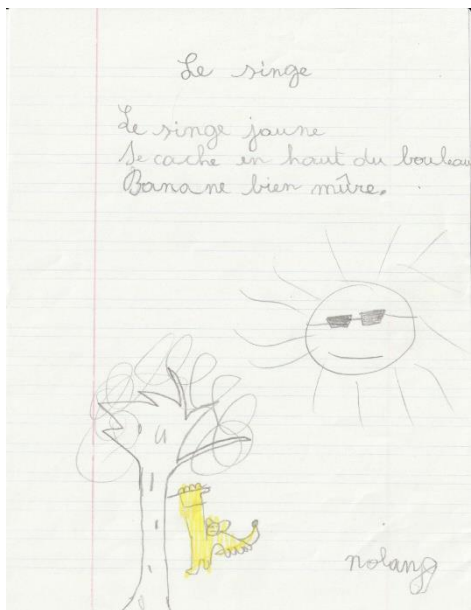 Le singe
Le singe jaune
Se cache en haut du bouleau
Banane bien mûre.
nolang